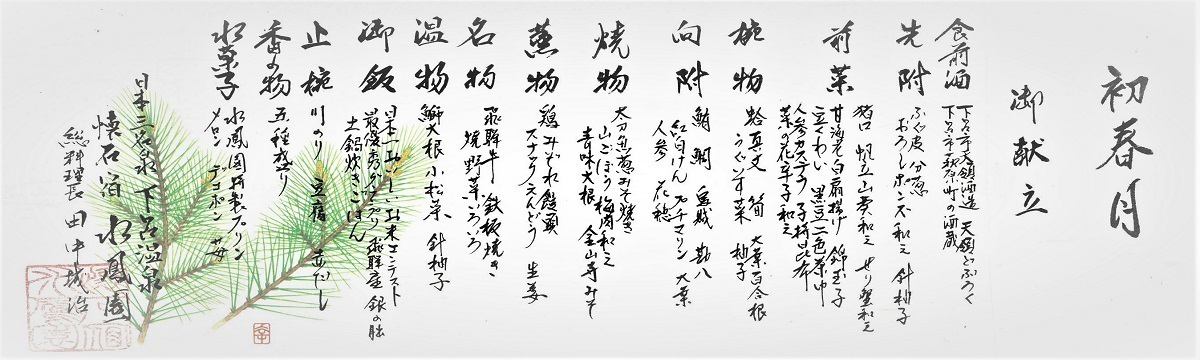 初春月
御献立
食前酒
下呂市天領酒造 天領どぶろく
下呂市萩原町の酒蔵
先附
ふぐ皮 分葱
おろしポンズ和え 針柚子
前菜
猪口 帆立山葵和え せり蟹和え
甘海老白扇揚げ 錦玉子
立くわい 黒豆二色茶巾
人参カステラ 子持昆布
菜の花辛子和え
椀物
蛤真丈 筍 大葉百合根
うぐいす菜 柚子
向附
鮪 鯛 烏賊 勘八
紅白けん プチマリン 大葉
人参 花穂
焼物
太刀魚葱みそ焼き
山ごぼう梅肉和え
青味大根 金山寺みそ
蒸物
鶏みぞれ饅頭
スナックえんどう 生姜
名物
飛騨牛 鉄板焼き
焼野菜いろいろ
温物
鰤大根 小松菜 針柚子
御飯
日本一おいしいお米コンテスト
最優秀グランプリ 飛騨産 銀の朏
土鍋炊きごはん
止椀
川のり 豆腐 赤だし
香の物
五種盛り
水菓子
水鳳園特製プリン
メロン デコポン 苺
日本三名泉 下呂温泉
懐石宿 水鳳園
総料理長 田中城治